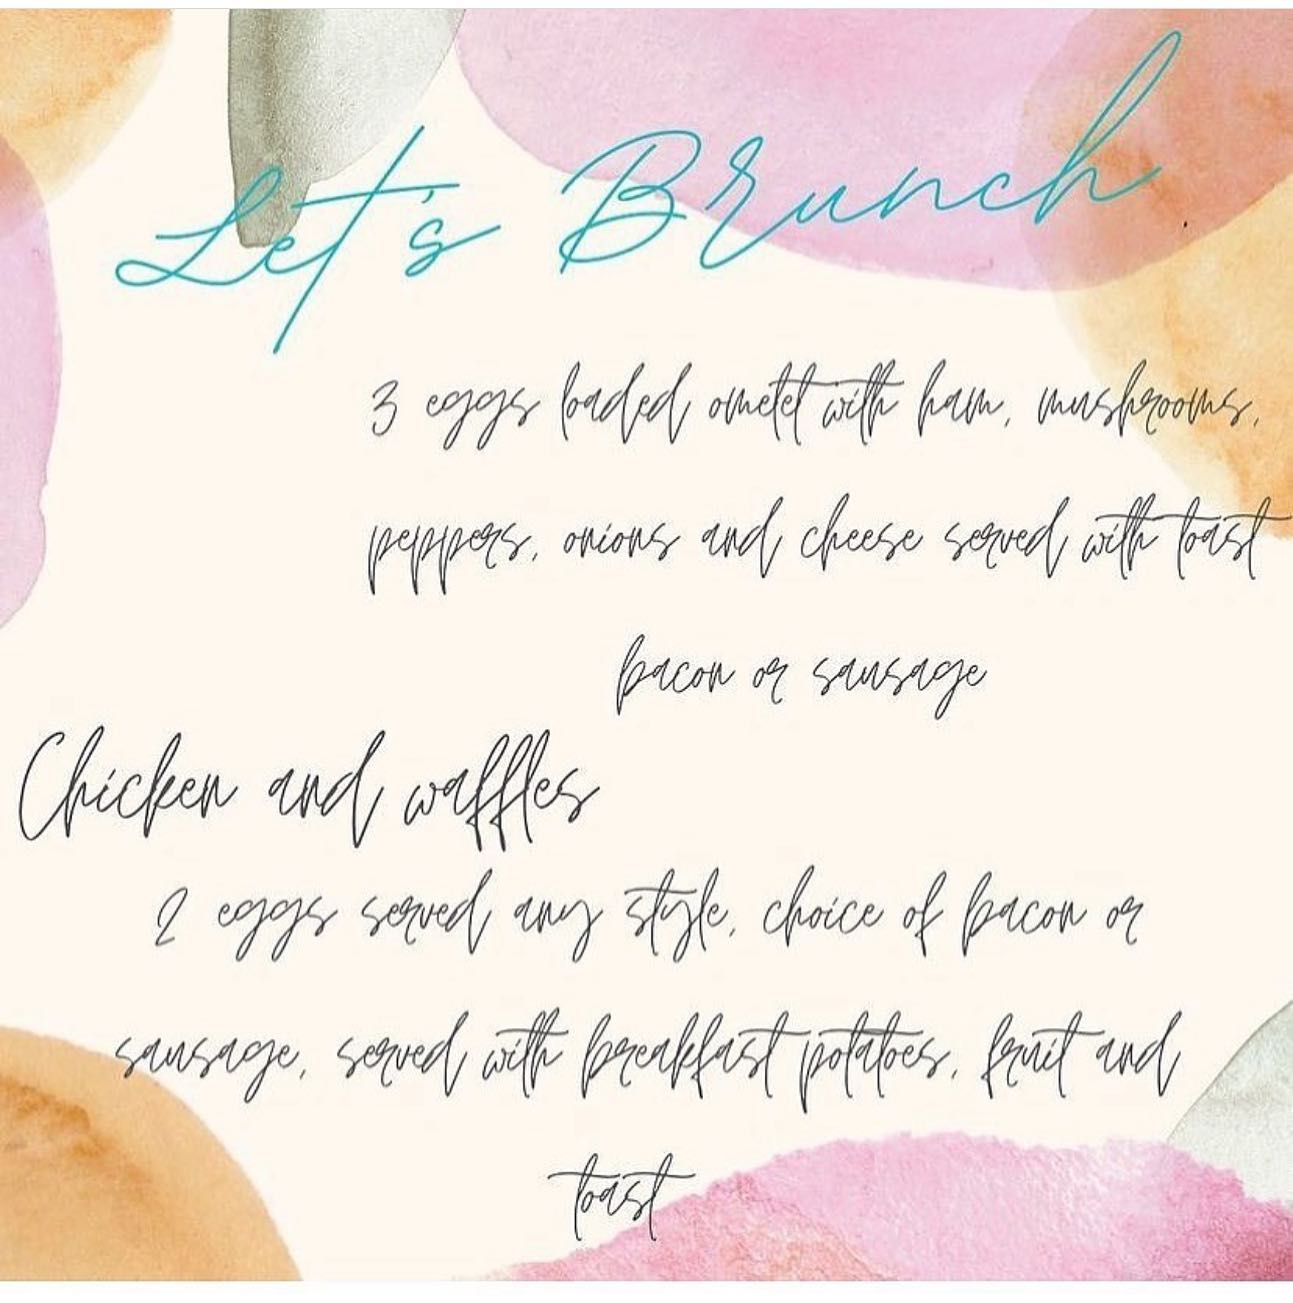 Let's Brunch
3 eggs loaded omelet with ham, mushrooms,
peppers, onions and cheese served with toast
bacon or sausage
Chicken and waffles
2 eggs served any style, choice of bacon or
sausage, served with breakfast potatoes, fruit and
toast